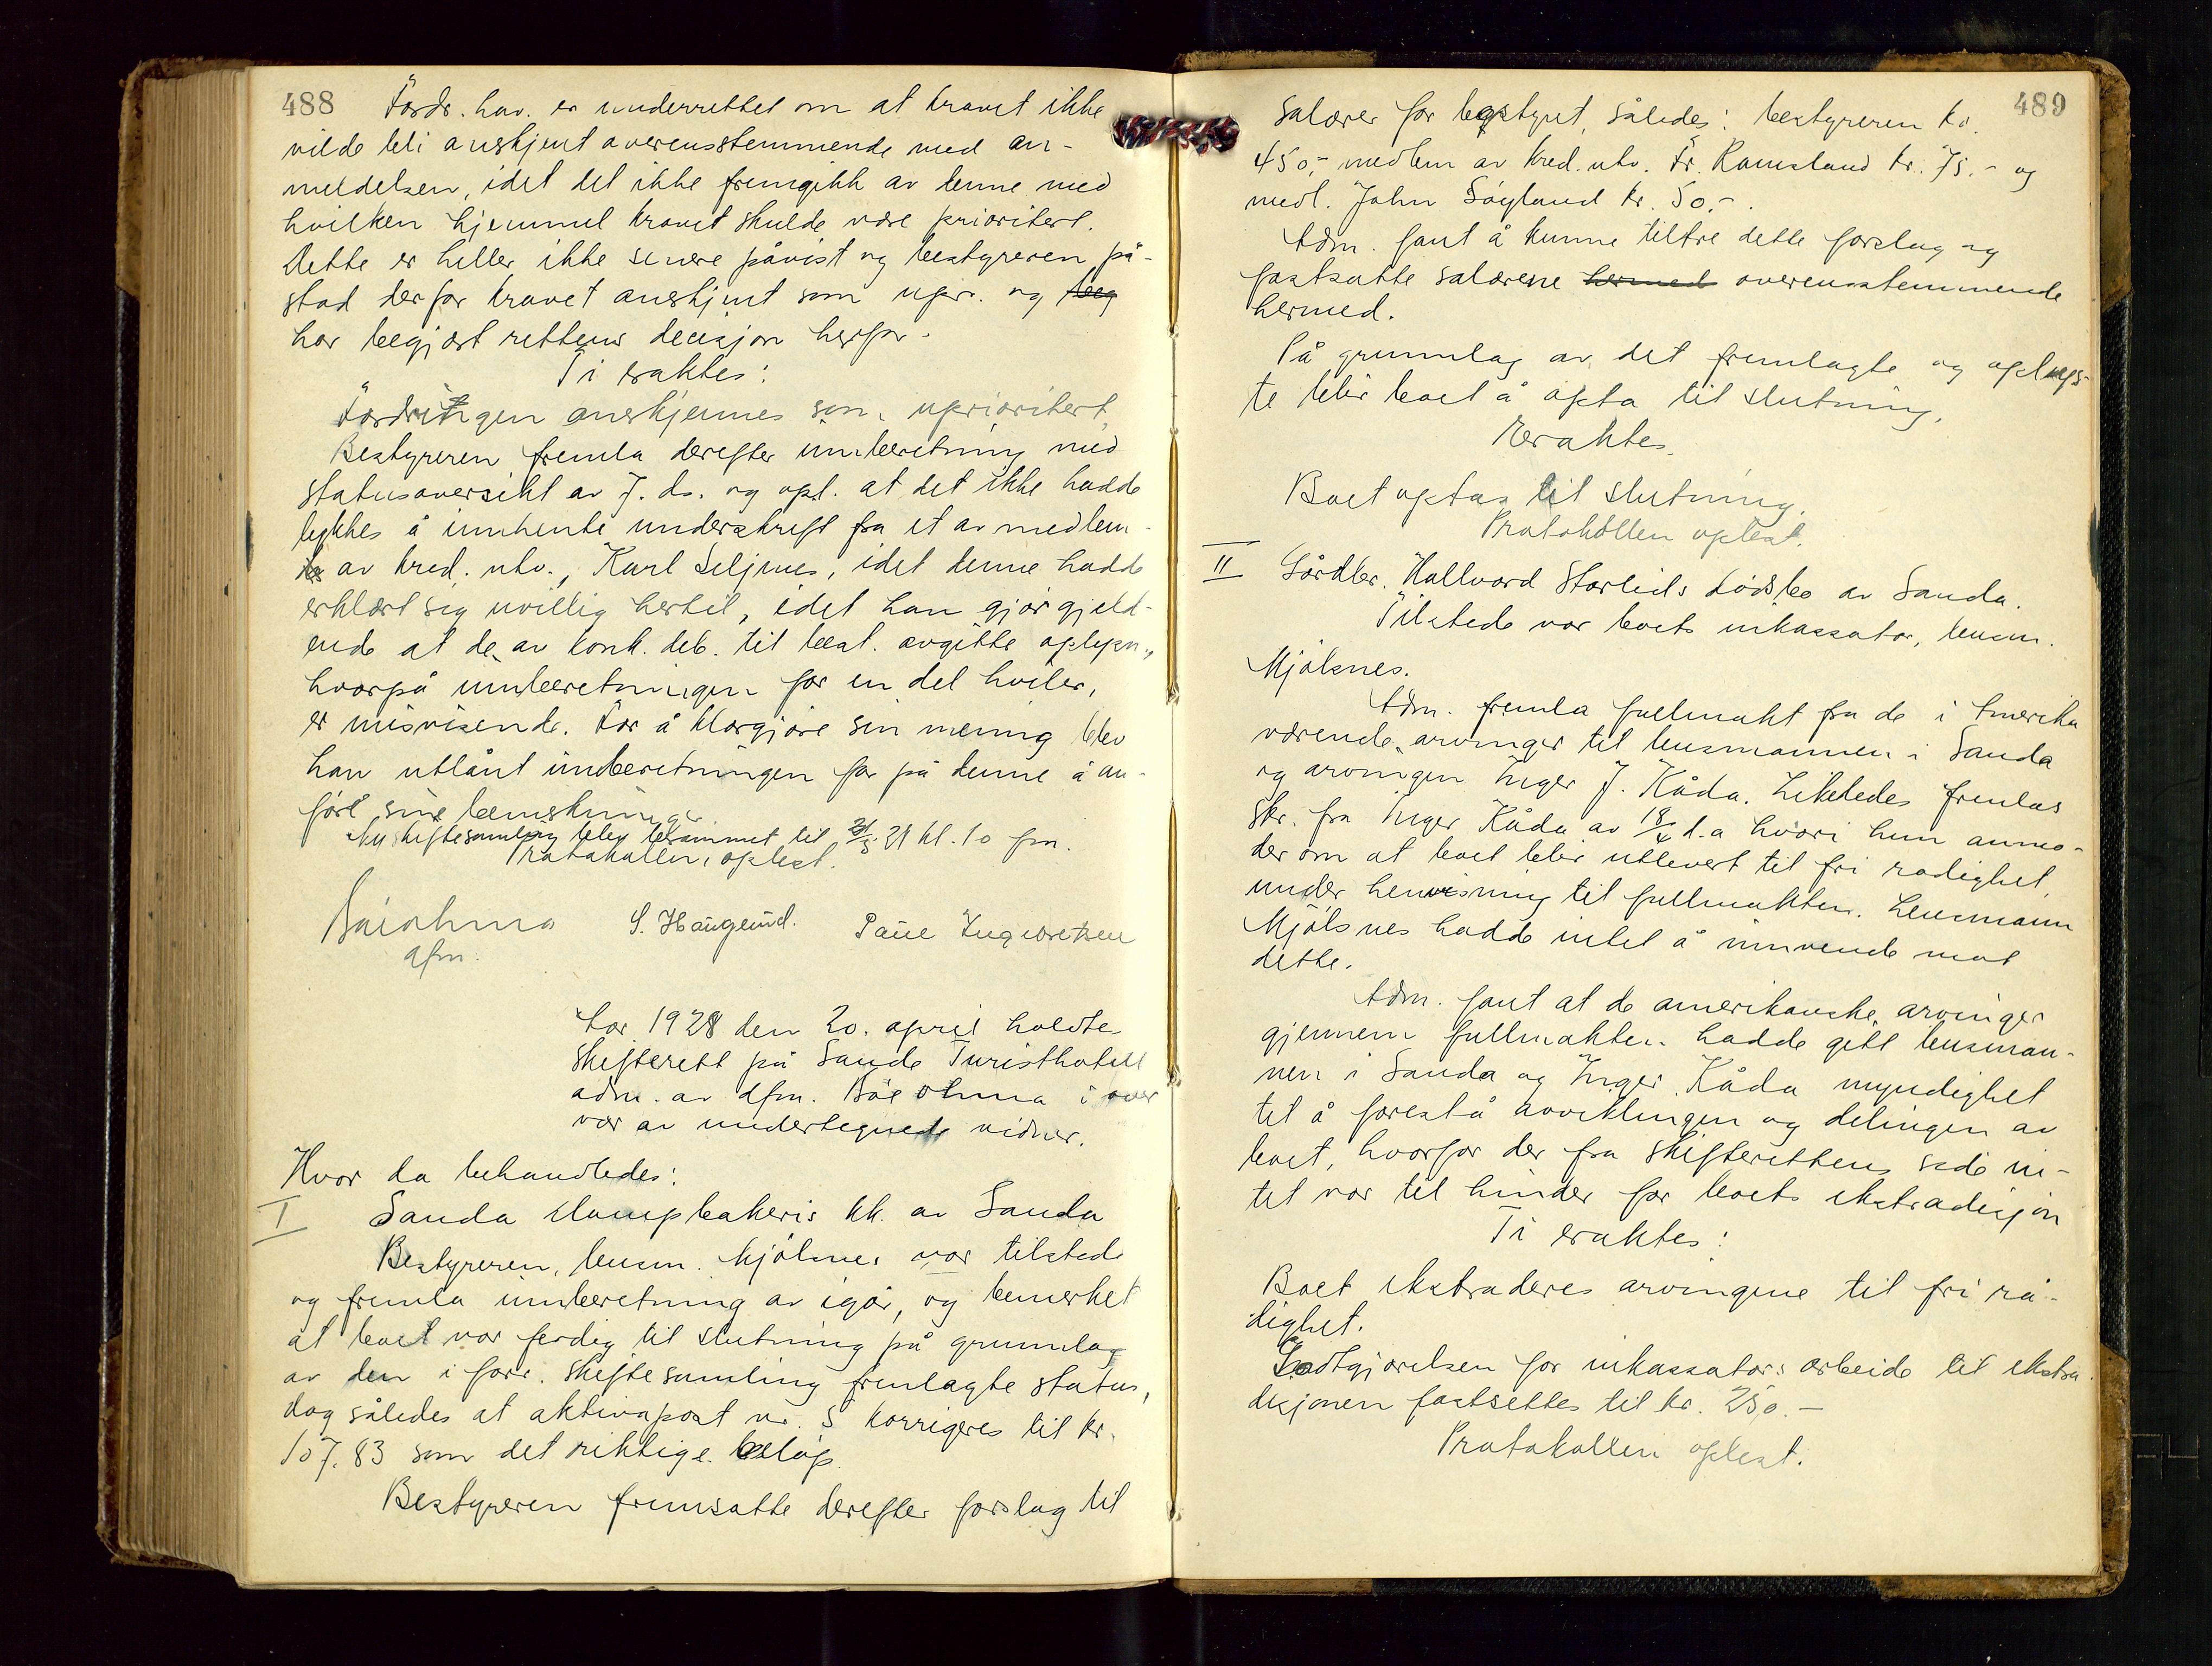 488
Fordr. hav. er underrettet om at kravet ikke
vilde bli anerkjent overensstemmende med an-
meldelsen, idet det ikke fremgikk av denne med
hvilken hjemmel kravet skulde være prioritert.
Dette er heller ikke senere påvist og bestyreren på-
stod derfor kravet anerkjent som upr. og beg
har begjært rettens decisjon herfor.
Ti eraktes:
Fordringen anerkjennes som uprioritert
Bestyreren fremla derefter innberetning med
statusoversikt av 7. ds. og opl. at det ikke hadde
lykkes å innhente underskrift fra et av medlem-
av kred. utv., Karl Seljmes, idet denne hadde
erklært sig uvillig hertil, idet han gjør gjeld-
ende at de av konk. deb. til best. avgitte oplysn.,
hvorpå innberetningen for en del hviler,
er misvisende. For å klargjøre sin mening blev
han utlånt innberetningen for på denne å an-
føre sine bemerkninger
Ny skiftesamling blev berammet til kl. 10 fm.
Protokollen oplest.
Bøiohma S. Haugeund. Paul Ingvoretsen
dfm.
År 1928 den 20. april holdtes
skifterett på Sauda Turisthotell
adm. av dfm. Bøe ohma i over
vær av undertegnede vidner.
Hvor da behandledes:
I Sauda Dampbakeris kk. av Sauda
Bestyreren, lensm. Mjølsnes var tilstede
og fremla innberetning av igår, og bemerket
at boet var ferdig til slutning på grunnlag
av den i forr. skiftesamling fremlagte status,
dog således at aktivapost nr. 5 korrigeres til kr.
107.83 som det riktige beløp.
Bestyreren fremsatte derefter forslag til
489
salærer for bostyret, således: bestyreren kr.
450.- medlem av kred. utv. Fr. Ramsland kr. 75.- og
medl. John Søyland kr. 50.-.
Adm. fant å kunne tiltre dette forslag og
fastsatte salærene hermed overensstemmende
hermed.
På grunnlag av det fremlagte og oplys-
te blir boet å opta til slutning.
Eraktes
Boet optas til slutning.
Protokollen oplest.
II Gårdbr. Hallvard Storlids dødsbo av Sauda.
Tilstede var boets inkassator, lensm.
Mjølsnes.
Adm. fremla fullmakt fra de i Amerika
værende arvinger til lensmannen i Sauda
og arvingen Inger J. Kåda. Likeledes fremlas
skr. fra Inger Kåda av 18/4 d.a hvori hun anmo-
der om at boet blir utlevert til fri radighet,
under henvisning til fullmakten. Lensmann
Mjølsnes hadde intet å innvende mot
dette.
Adm. fant at de amerikanske arvinger
gjennem fullmakten hadde gitt lensman-
nen i Sauda og Inger Kåda myndighet
til å forestå avviklingen og delingen av
boet, hvorfor der fra skifterettens side in-
tet var til hinder for boets ekstradisjon
Ti eraktes:
Boet ekstraderes arvingene til fri rå-
dighet.
Godtgjørelsen for inkassators arbeide til ekstra
disjonen fastsettes til kr. 250.-
Protokollen oplest.